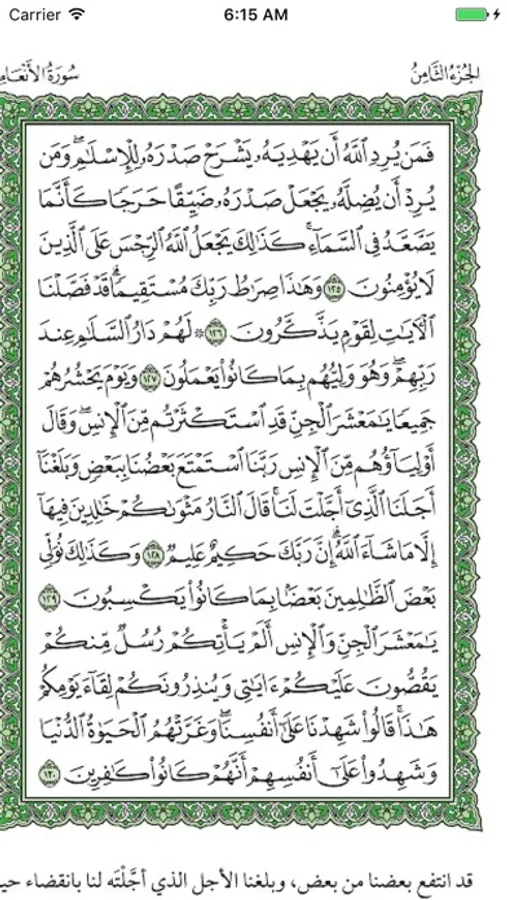 Carrier 6:15 AM
الجزء الثامن سورة الأنعام
فَمَن يُرِدِ ٱللَّهُ أَن يَهْدِيَهُۥ يَشْرَحْ صَدْرَهُۥ لِلْإِسْلَٰمِۖ وَمَن
يُرِدْ أَن يُضِلَّهُۥ يَجْعَلْ صَدْرَهُۥ ضَيِّقًا حَرَجًا كَأَنَّمَا
يَصَّعَّدُ فِى ٱلسَّمَآءِۚ كَذَٰلِكَ يَجْعَلُ ٱللَّهُ ٱلرِّجْسَ عَلَى ٱلَّذِينَ
لَا يُؤْمِنُونَ ١٢٥ وَهَٰذَا صِرَٰطُ رَبِّكَ مُسْتَقِيمًاۗ قَدْ فَصَّلْنَا
ٱلْءَايَٰتِ لِقَوْمٍ يَذَّكَّرُونَ ١٢٦ ۞ لَهُمْ دَارُ ٱلسَّلَٰمِ عِندَ
رَبِّهِمْۖ وَهُوَ وَلِيُّهُم بِمَا كَانُوا۟ يَعْمَلُونَ ١٢٧ وَيَوْمَ يَحْشُرُهُمْ
جَمِيعًا يَٰمَعْشَرَ ٱلْجِنِّ قَدِ ٱسْتَكْثَرْتُم مِّنَ ٱلْإِنسِۖ وَقَالَ
أَوْلِيَآؤُهُم مِّنَ ٱلْإِنسِ رَبَّنَا ٱسْتَمْتَعَ بَعْضُنَا بِبَعْضٍ وَبَلَغْنَآ
أَجَلَنَا ٱلَّذِىٓ أَجَّلْتَ لَنَاۚ قَالَ ٱلنَّارُ مَثْوَىٰكُمْ خَٰلِدِينَ فِيهَآ
إِلَّا مَا شَآءَ ٱللَّهُۗ إِنَّ رَبَّكَ حَكِيمٌ عَلِيمٌ ١٢٨ وَكَذَٰلِكَ نُوَلِّى
بَعْضَ ٱلظَّٰلِمِينَ بَعْضًۢا بِمَا كَانُوا۟ يَكْسِبُونَ ١٢٩
يَٰمَعْشَرَ ٱلْجِنِّ وَٱلْإِنسِ أَلَمْ يَأْتِكُمْ رُسُلٌ مِّنكُمْ
يَقُصُّونَ عَلَيْكُمْ ءَايَٰتِى وَيُنذِرُونَكُمْ لِقَآءَ يَوْمِكُمْ
هَٰذَاۚ قَالُوا۟ شَهِدْنَا عَلَىٰٓ أَنفُسِنَاۖ وَغَرَّتْهُمُ ٱلْحَيَوٰةُ ٱلدُّنْيَا
وَشَهِدُوا۟ عَلَىٰٓ أَنفُسِهِمْ أَنَّهُمْ كَانُوا۟ كَٰفِرِينَ ١٣٠
قد انتفع بعضنا من بعض، وبلغنا الأجل الذي أجَّلْتَه لنا بانقضاء